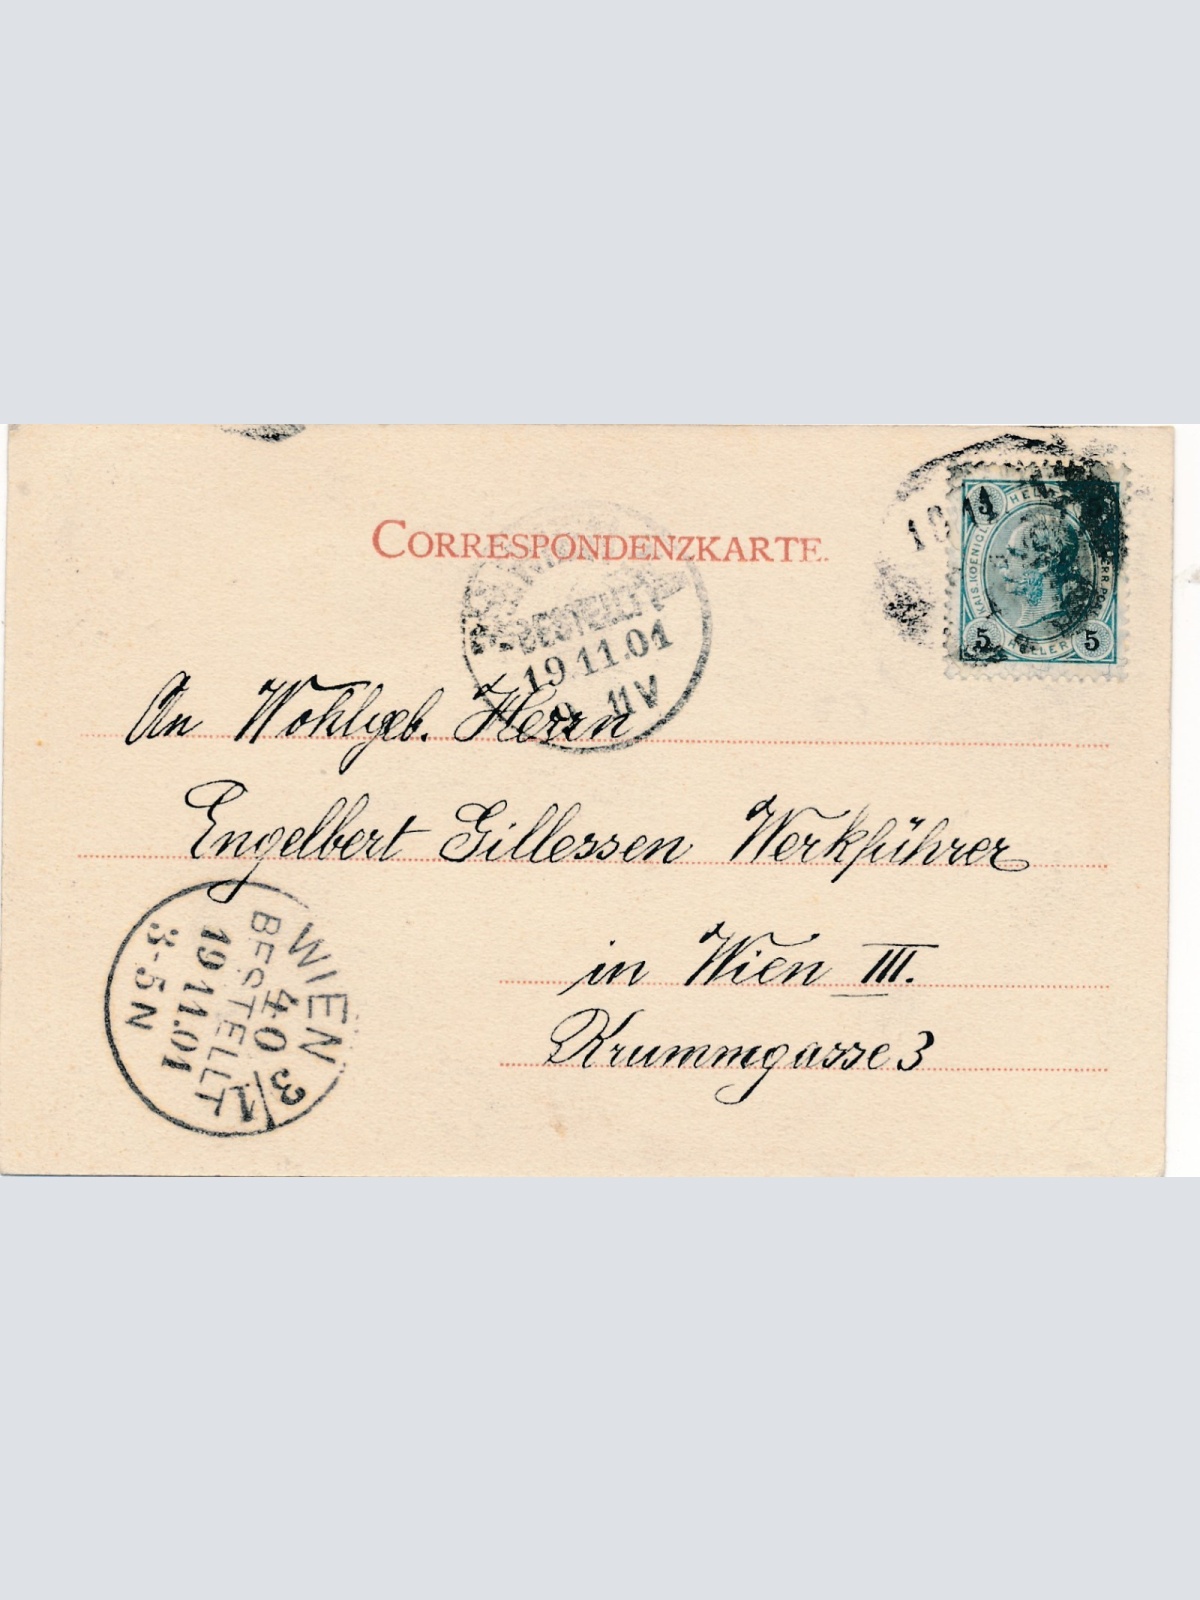 CORRESPONDENZKARTE.
BESTELLT
19.11.01
11 V
19 11
HELLER
KAIS. KOENIGL.
5 HELLER 5
An Wohlgeb. Herrn
Engelbert Gillessen Werkführer
in Wien III.
Krummgasse 3
WIEN 3/1
40
BESTELLT
19 11.01
3-5 N